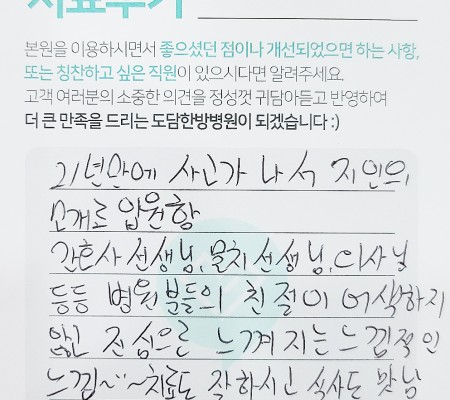 치료후기
본원을 이용하시면서 좋으셨던 점이나 개선되었으면 하는 사항,
또는 칭찬하고 싶은 직원이 있으시다면 알려주세요.
고객 여러분의 소중한 의견을 정성껏 귀담아듣고 반영하여
더 큰 만족을 드리는 도담한방병원이 되겠습니다 :)
21년만에 사고가 나서 지인의
소개로 입원함
간호사 선생님, 물치 선생님, 의사님
등등 병원분들의 친절이 어색하지
않고 진심으로 느껴지는 느낌적인
느낌~~~치료도 잘하시고 식사도 맛남